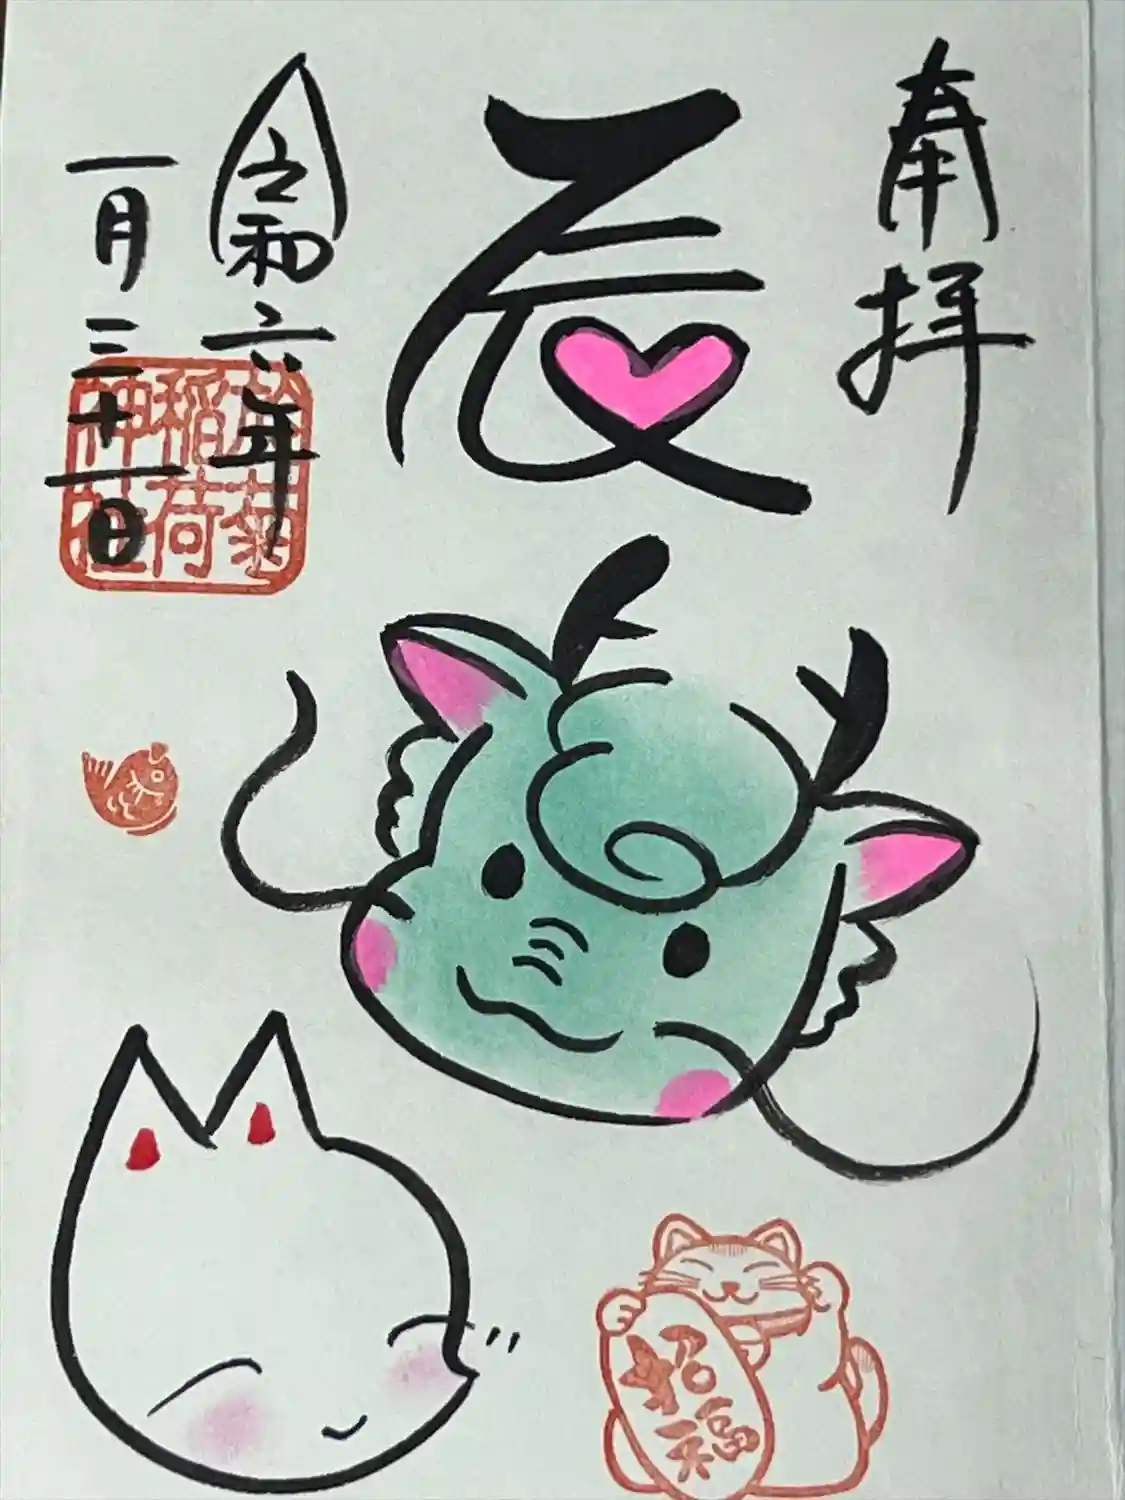 奉拝
辰
令和六年
一月三十一日
稲荷
神社
招福